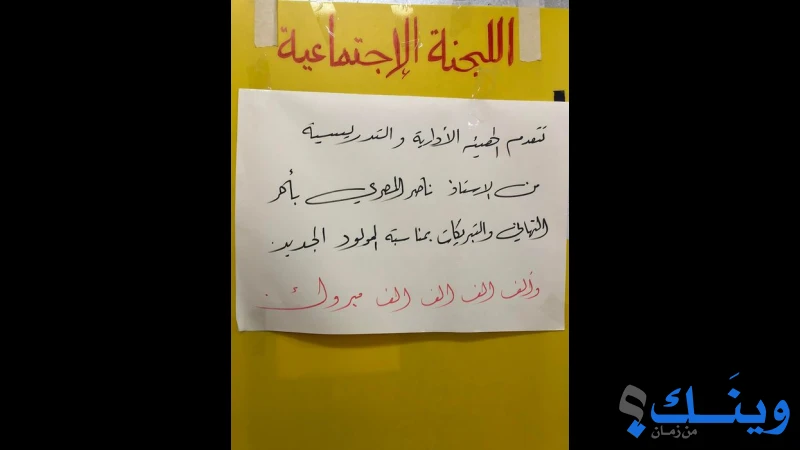 اللجنة الإجتماعية
تتقدم الهيئه الأدارية والتدريسية
من الاستاذ ناصر المصري بأحر
التهاني والتبريكات بمناسبة المولود الجديد.
وألف الف الف الف مبروك.
وينَك؟
من زمان